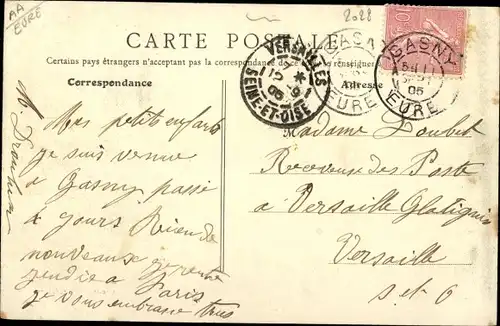 AA
EURE
2028
CARTE POSTALE
Certains pays étrangers n'acceptant pas la correspondance de ce côté, se renseigner
Correspondance
Adresse
VERSAILLES
12 -9
05
SEINE-ET-OISE
GASNY
EURE
GASNY
05
EURE
10
Mes petits enfants
je suis venue
a Gasny passé
8 jours Rien de
nouveau je rentre
jendie a Paris
je vous embrasse tous
Madame Loubet
Receveuse des Poste
a Versaille Glatigny
Versaille
S et O